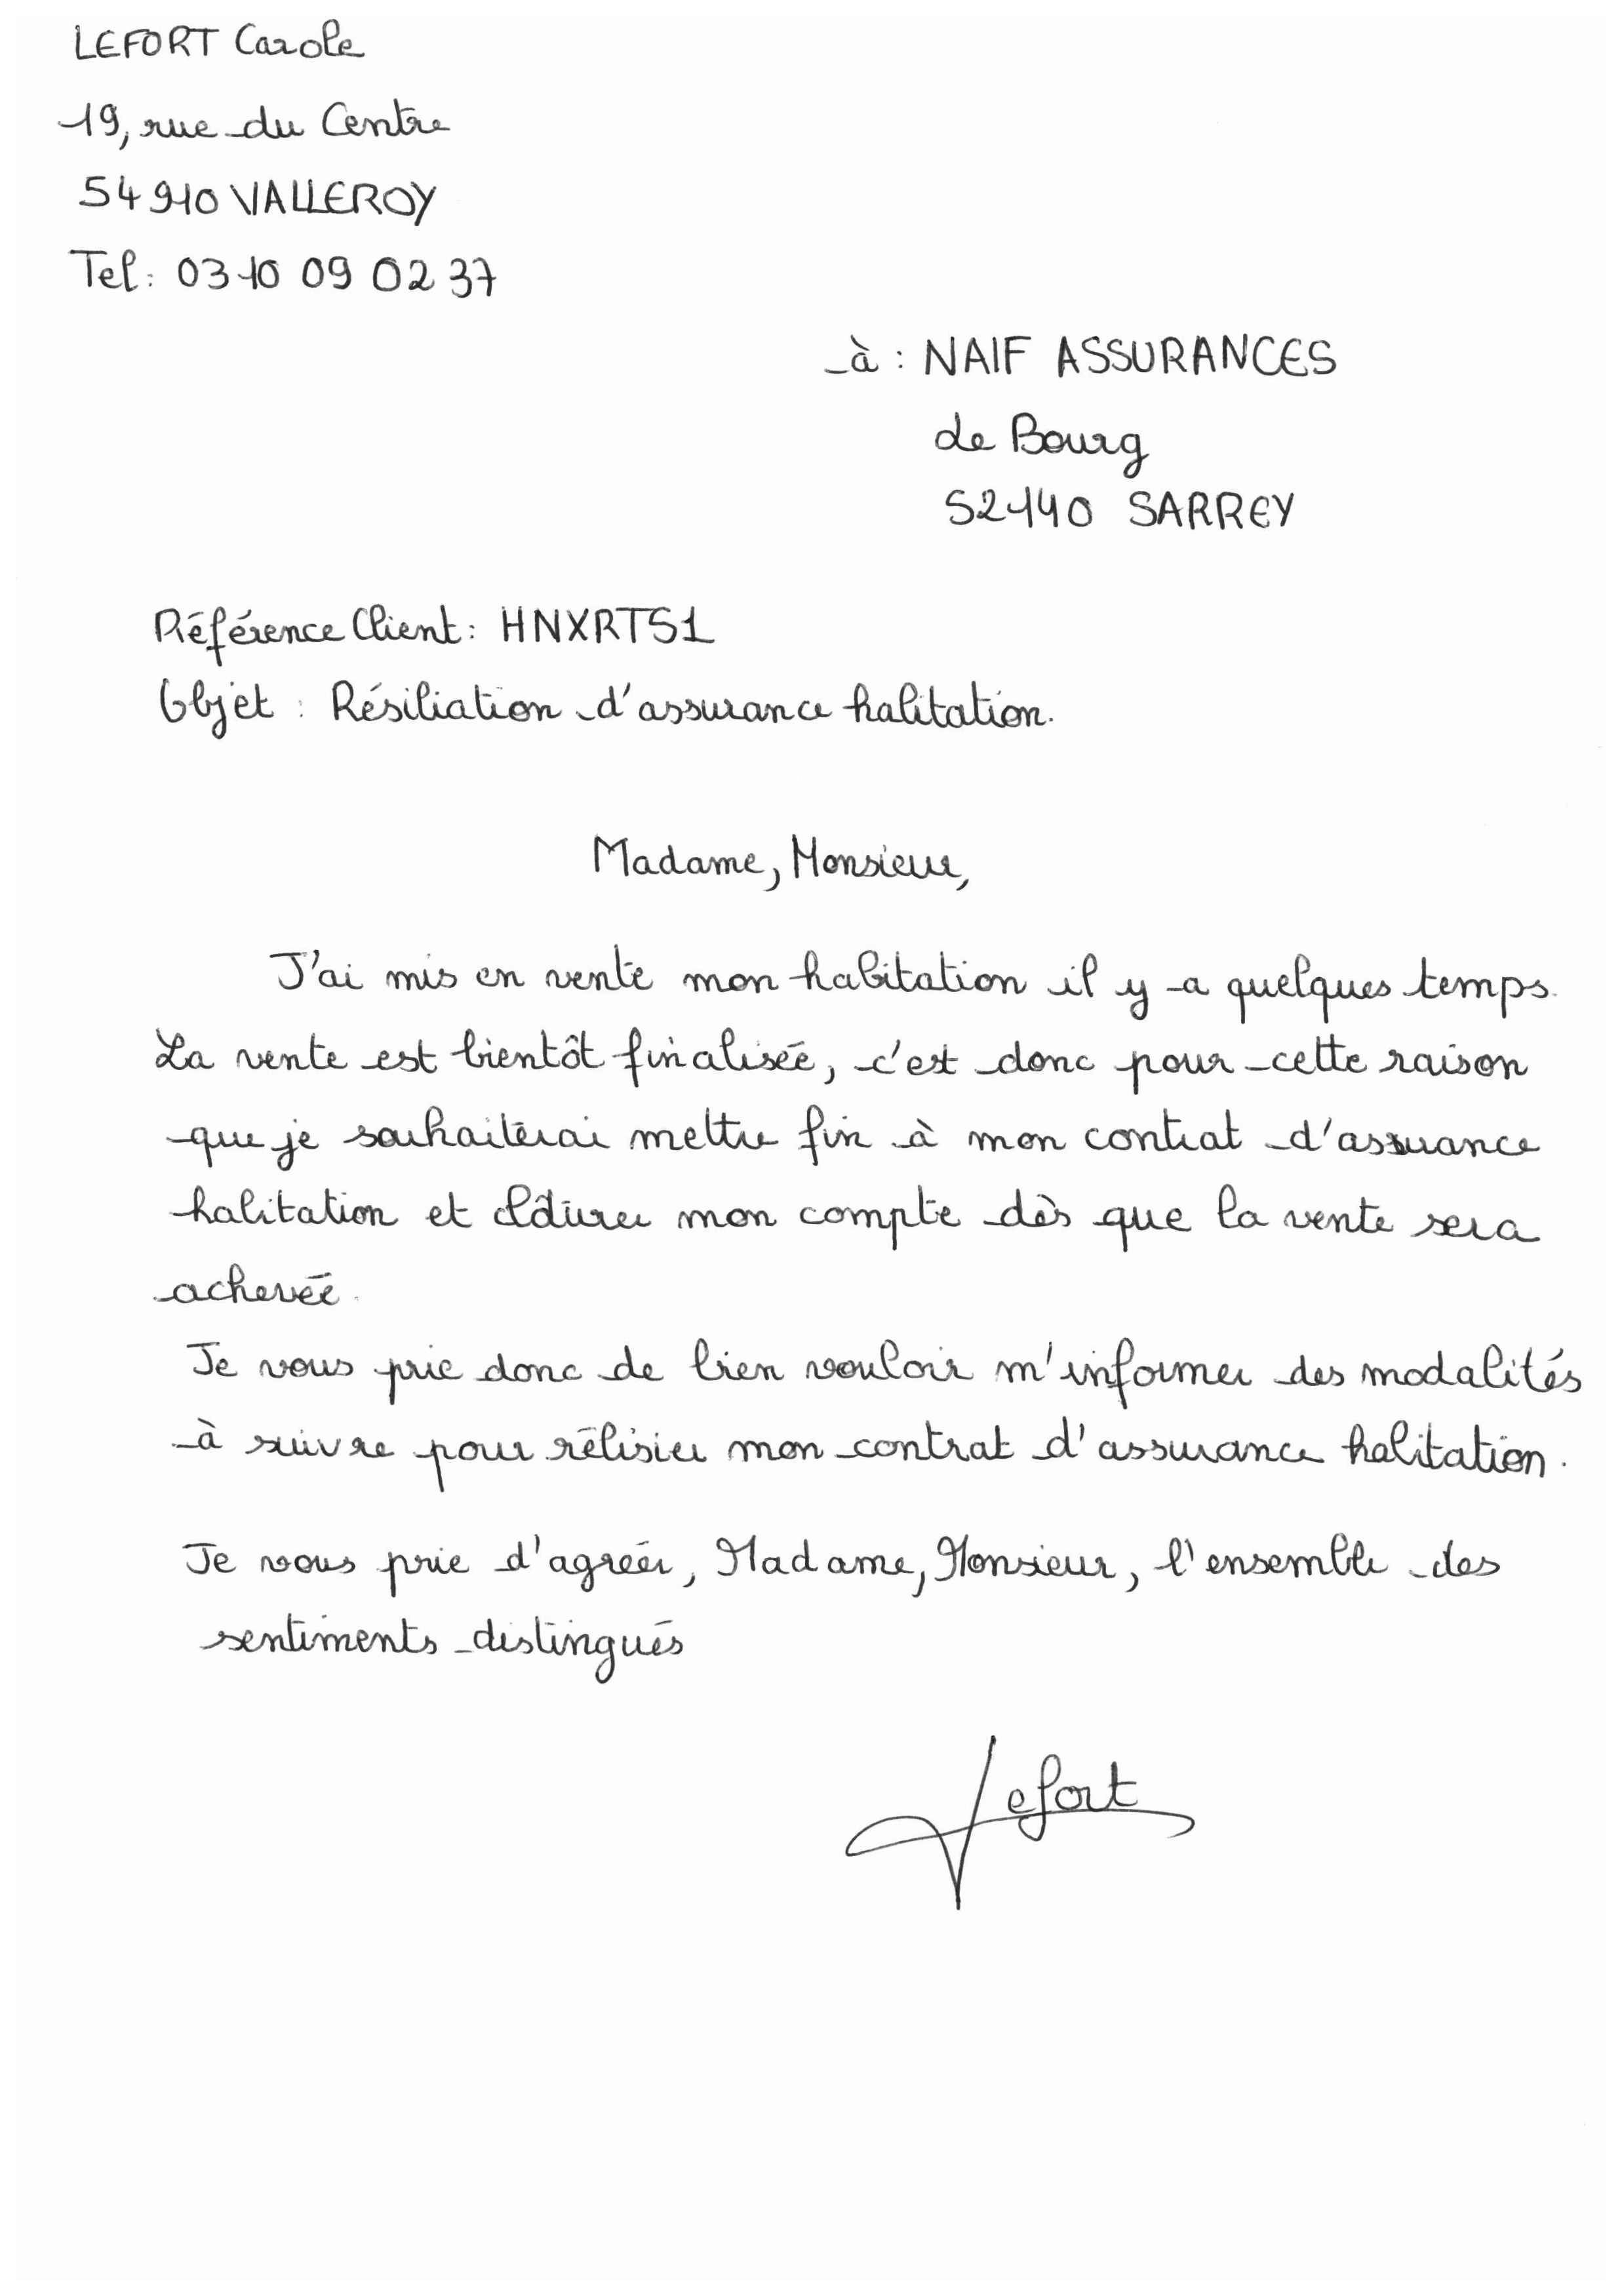 LEFORT Carole
19, rue du Centre
54910 VALLEROY
Tel: 03 10 09 02 37
à : NAIF ASSURANCES
de Bourg
52140 SARREY
Référence Client: HNXRT51
Objet : Résiliation d'assurance habitation.
Madame, Monsieur,
J'ai mis en vente mon habitation il y a quelques temps.
La vente est bientôt finalisée, c'est donc pour cette raison
que je souhaiterai mettre fin à mon contrat d'assurance
habitation et clôturer mon compte dès que la vente sera
achevée.
Je vous prie donc de bien vouloir m'informer des modalités
à suivre pour rélisier mon contrat d'assurance habitation.
Je vous prie d'agréer, Madame, Monsieur, l'ensemble des
sentiments distingués
Lefort